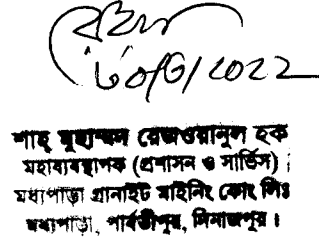 ৩০/৩/২০২২
শাহ্ মুহাম্মদ রেজওয়ানুল হক
মহাব্যবস্থাপক (প্রশাসন ও সার্ভিস)
মধ্যপাড়া গ্রানাইট মাইনিং কোং লিঃ
মধ্যপাড়া, পার্বতীপুর, দিনাজপুর।